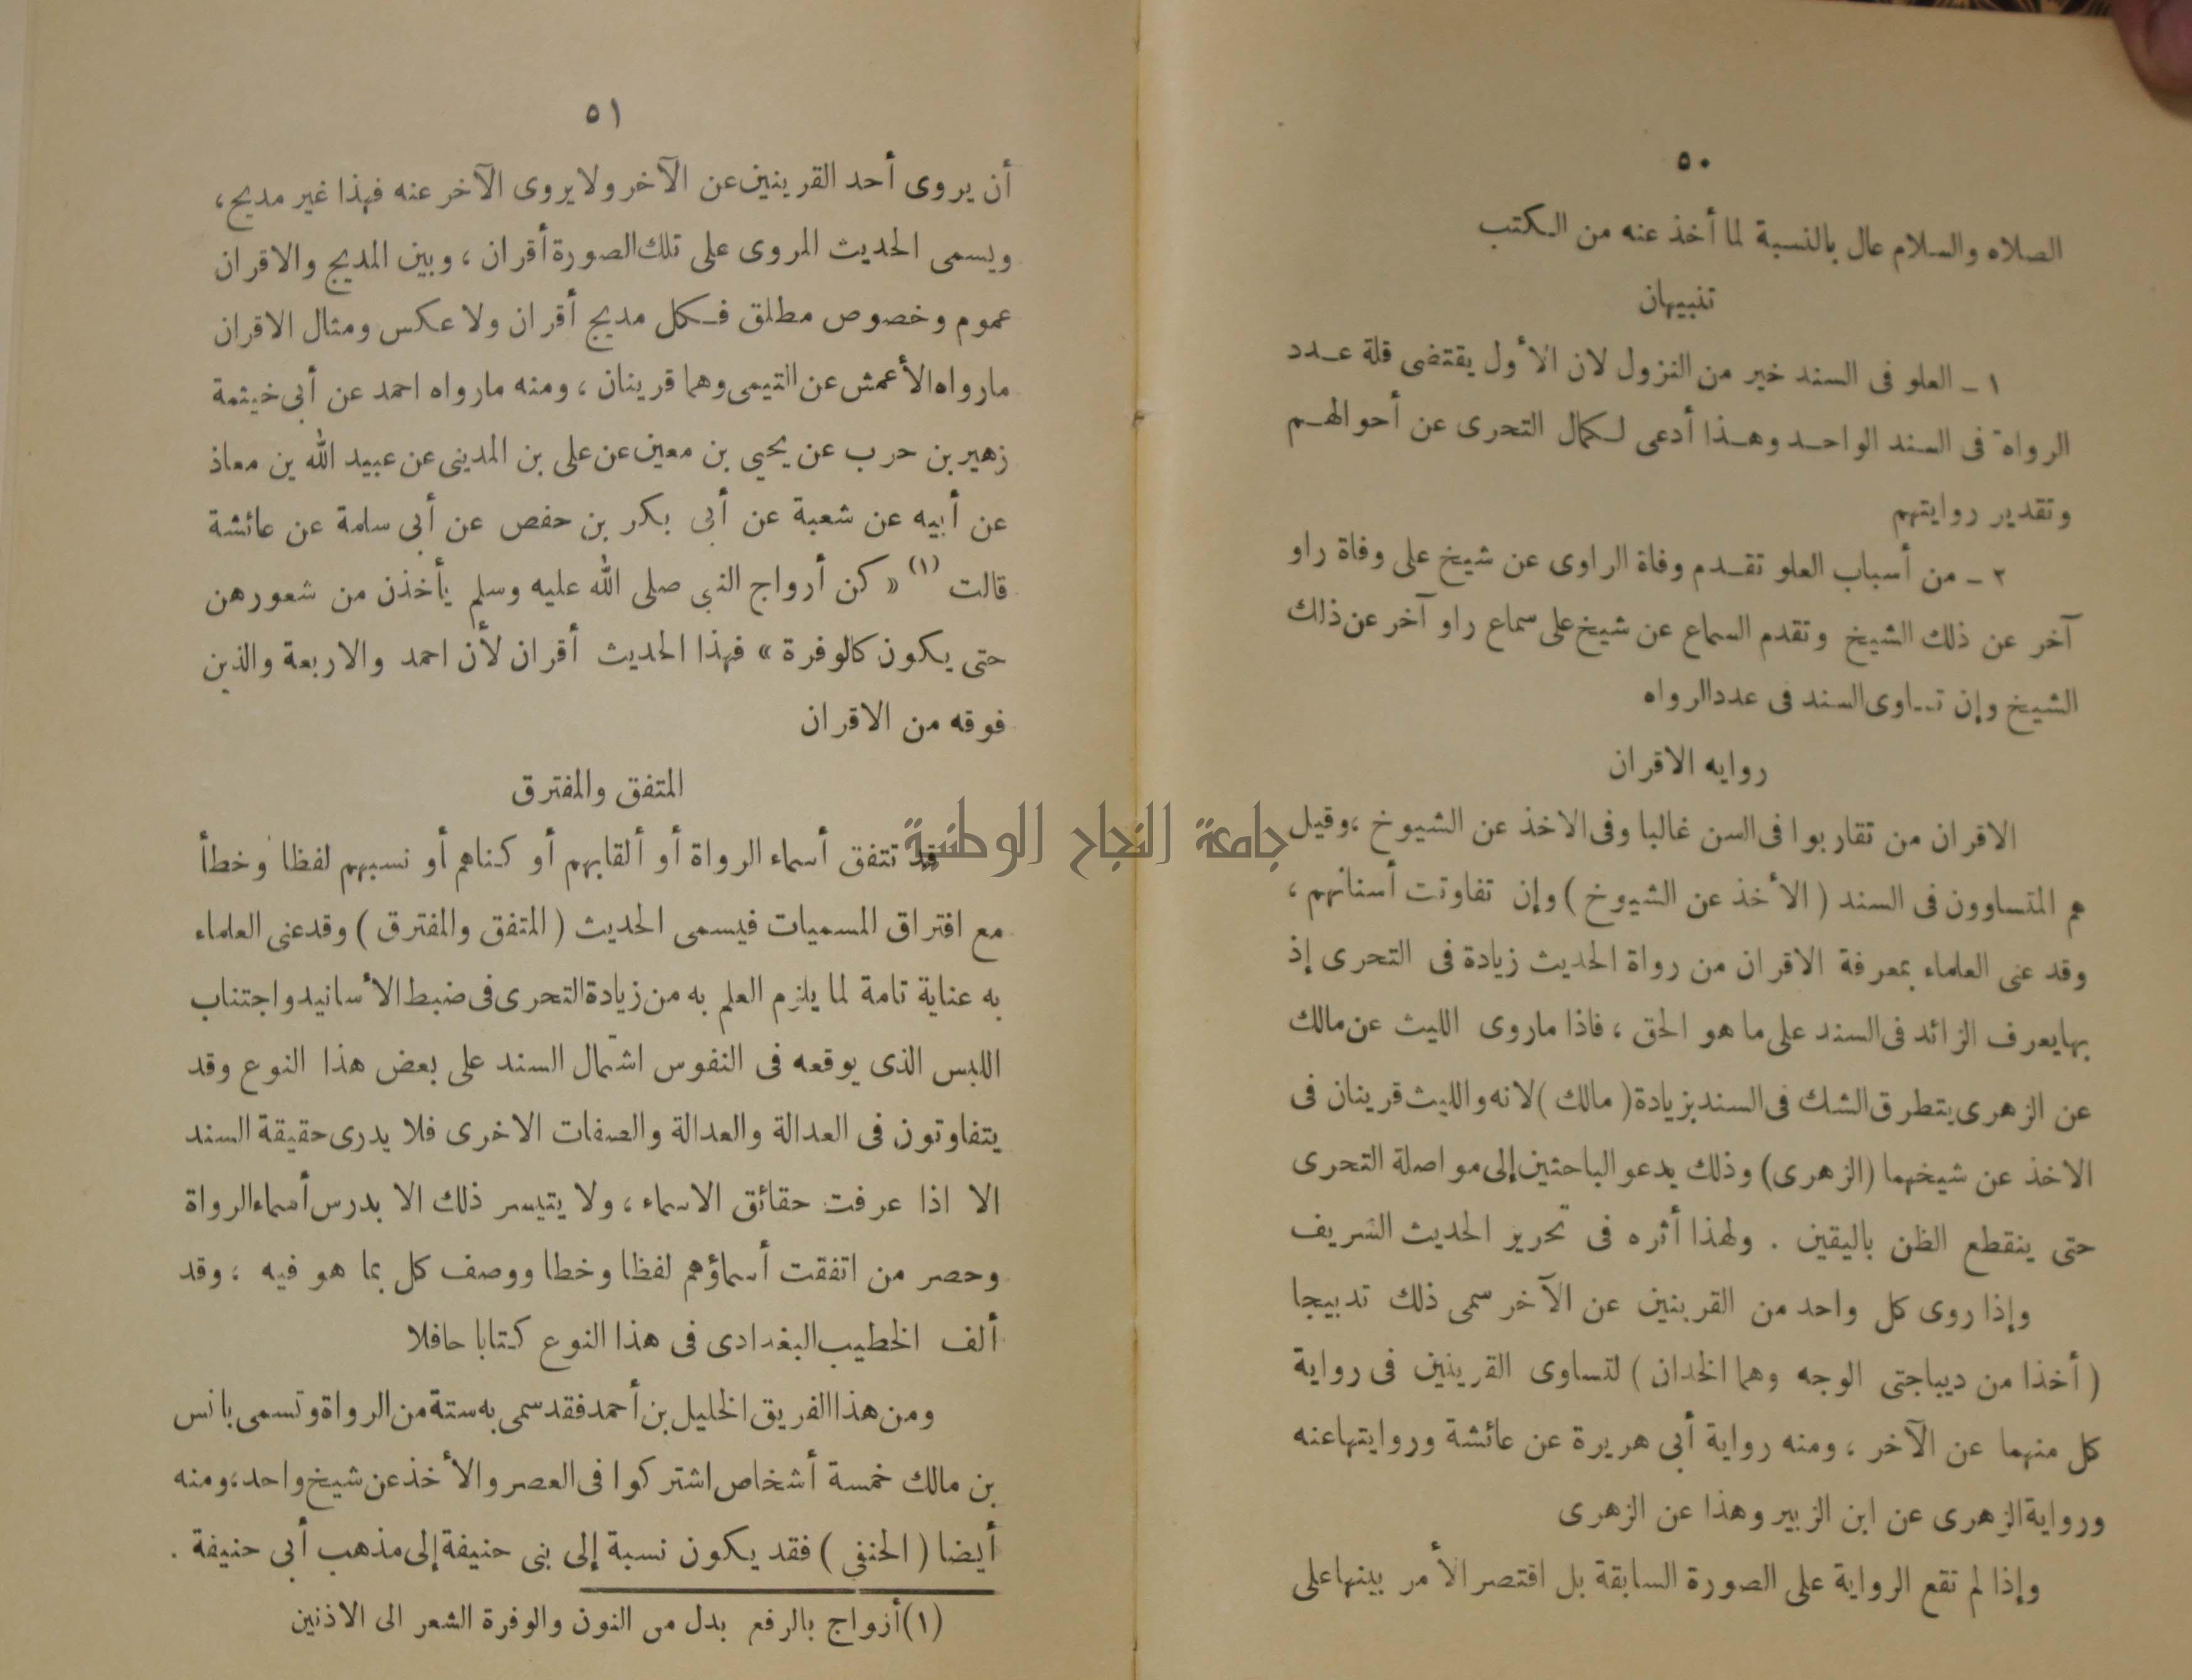 ٥٠
الصلاه والسلام عال بالنسبة لما أخذ عنه من الكتب
تنبيهان
١ – العلو فى السند خير من النزول لان الأول يقتضى قلة عدد
الرواة فى السند الواحد وهذا أدعى لكمال التحرى عن أحوالهم
وتقدير روايتهم
٢ – من أسباب العلو تقدم وفاة الراوى عن شيخ على وفاة راو
آخر عن ذلك الشيخ وتقدم السماع عن شيخ على سماع راو آخر عن ذلك
الشيخ وإن تساوى السند فى عدد الرواه
روايه الاقران
الاقران من تقاربوا فى السن غالبا وفى الاخذ عن الشيوخ ، وقيل
هم المتساوون فى السند ( الأخذ عن الشيوخ ) وإن تفاوتت أسنانهم ،
وقد عنى العلماء بمعرفة الاقران من رواة الحديث زيادة فى التحرى إذ
بها يعرف الزائد فى السند على ما هو الحق ، فاذا ماروى الليث عن مالك
عن الزهرى يتطرق الشك فى السند بزيادة ( مالك ) لانه والليث قرينان فى
الاخذ عن شيخهما (الزهرى) وذلك يدعو الباحثين إلى مواصلة التحرى
حتى ينقطع الظن باليقين . ولهذا أثره فى تحرير الحديث الشريف
وإذا روى كل واحد من القرينين عن الآخر سمى ذلك تدبيجا
( أخذا من ديباجتى الوجه وهما الخدان ) لتساوى القرينين فى رواية
كل منهما عن الآخر ، ومنه رواية أبى هريرة عن عائشة وروايتها عنه
ورواية الزهرى عن ابن الزبير وهذا عن الزهرى
وإذا لم تقع الرواية على الصورة السابقة بل اقتصر الأمر بينها على
٥١
أن يروى أحد القرينين عن الآخر ولا يروى الآخر عنه فهذا غير مديج ،
ويسمى الحديث المروى على تلك الصورة أقران ، وبين المديج والاقران
عموم وخصوص مطلق فكل مديج أقران ولا عكس ومثال الاقران
مارواه الأعمش عن التيمى وهما قرينان ، ومنه مارواه احمد عن أبى خيثمة
زهير بن حرب عن يحيي بن معين عن على بن المدينى عن عبيد الله بن معاذ
عن أبيه عن شعبة عن أبى بكر بن حفص عن أبى سلمة عن عائشة
قالت (١) « كن أرواج النبى صلى الله عليه وسلم يأخذن من شعورهن
حتى يكون كالوفرة » فهذا الحديث أقران لأن احمد والاربعة والذين
فوقه من الاقران
المتفق والمفترق
قد تتفق أسماء الرواة أو ألقابهم أو كناهم أو نسبهم لفظا وخطأ
مع افتراق المسميات فيسمى الحديث ( المتفق والمفترق ) وقد عنى العلماء
به عناية تامة لما يلزم العلم به من زيادة التحرى فى ضبط الأسانيد واجتناب
اللبس الذى يوقعه فى النفوس اشتمال السند على بعض هذا النوع وقد
يتفاوتون فى العدالة والعدالة والصفات الاخرى فلا يدرى حقيقة السند
الا اذا عرفت حقائق الاسماء ، ولا يتيسر ذلك الا بدرس أسماء الرواة
وحصر من اتفقت أسماؤهم لفظا وخطا ووصف كل بما هو فيه ، وقد
ألف الخطيب البغدادى فى هذا النوع كتابا حافلا
ومن هذا الفريق الخليل بن أحمد فقد سمى به ستة من الرواة وتسمى بانس
بن مالك خمسة أشخاص اشتركوا فى العصر والأخذ عن شيخ واحد ، ومنه
أيضا ( الحنفى ) فقد يكون نسبة إلى بنى حنيفة إلى مذهب أبى حنيفة .
(١) أزواج بالرفع بدل من النون والوفرة الشعر الى الاذنين
جامعة النجاح الوطنية